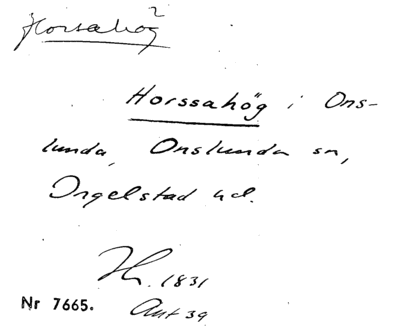 Horssahög 2
Horssahög i Ons-
lunda, Onslunda sn,
Ingelstad hd.
1831
Nr 7665. Ant 39